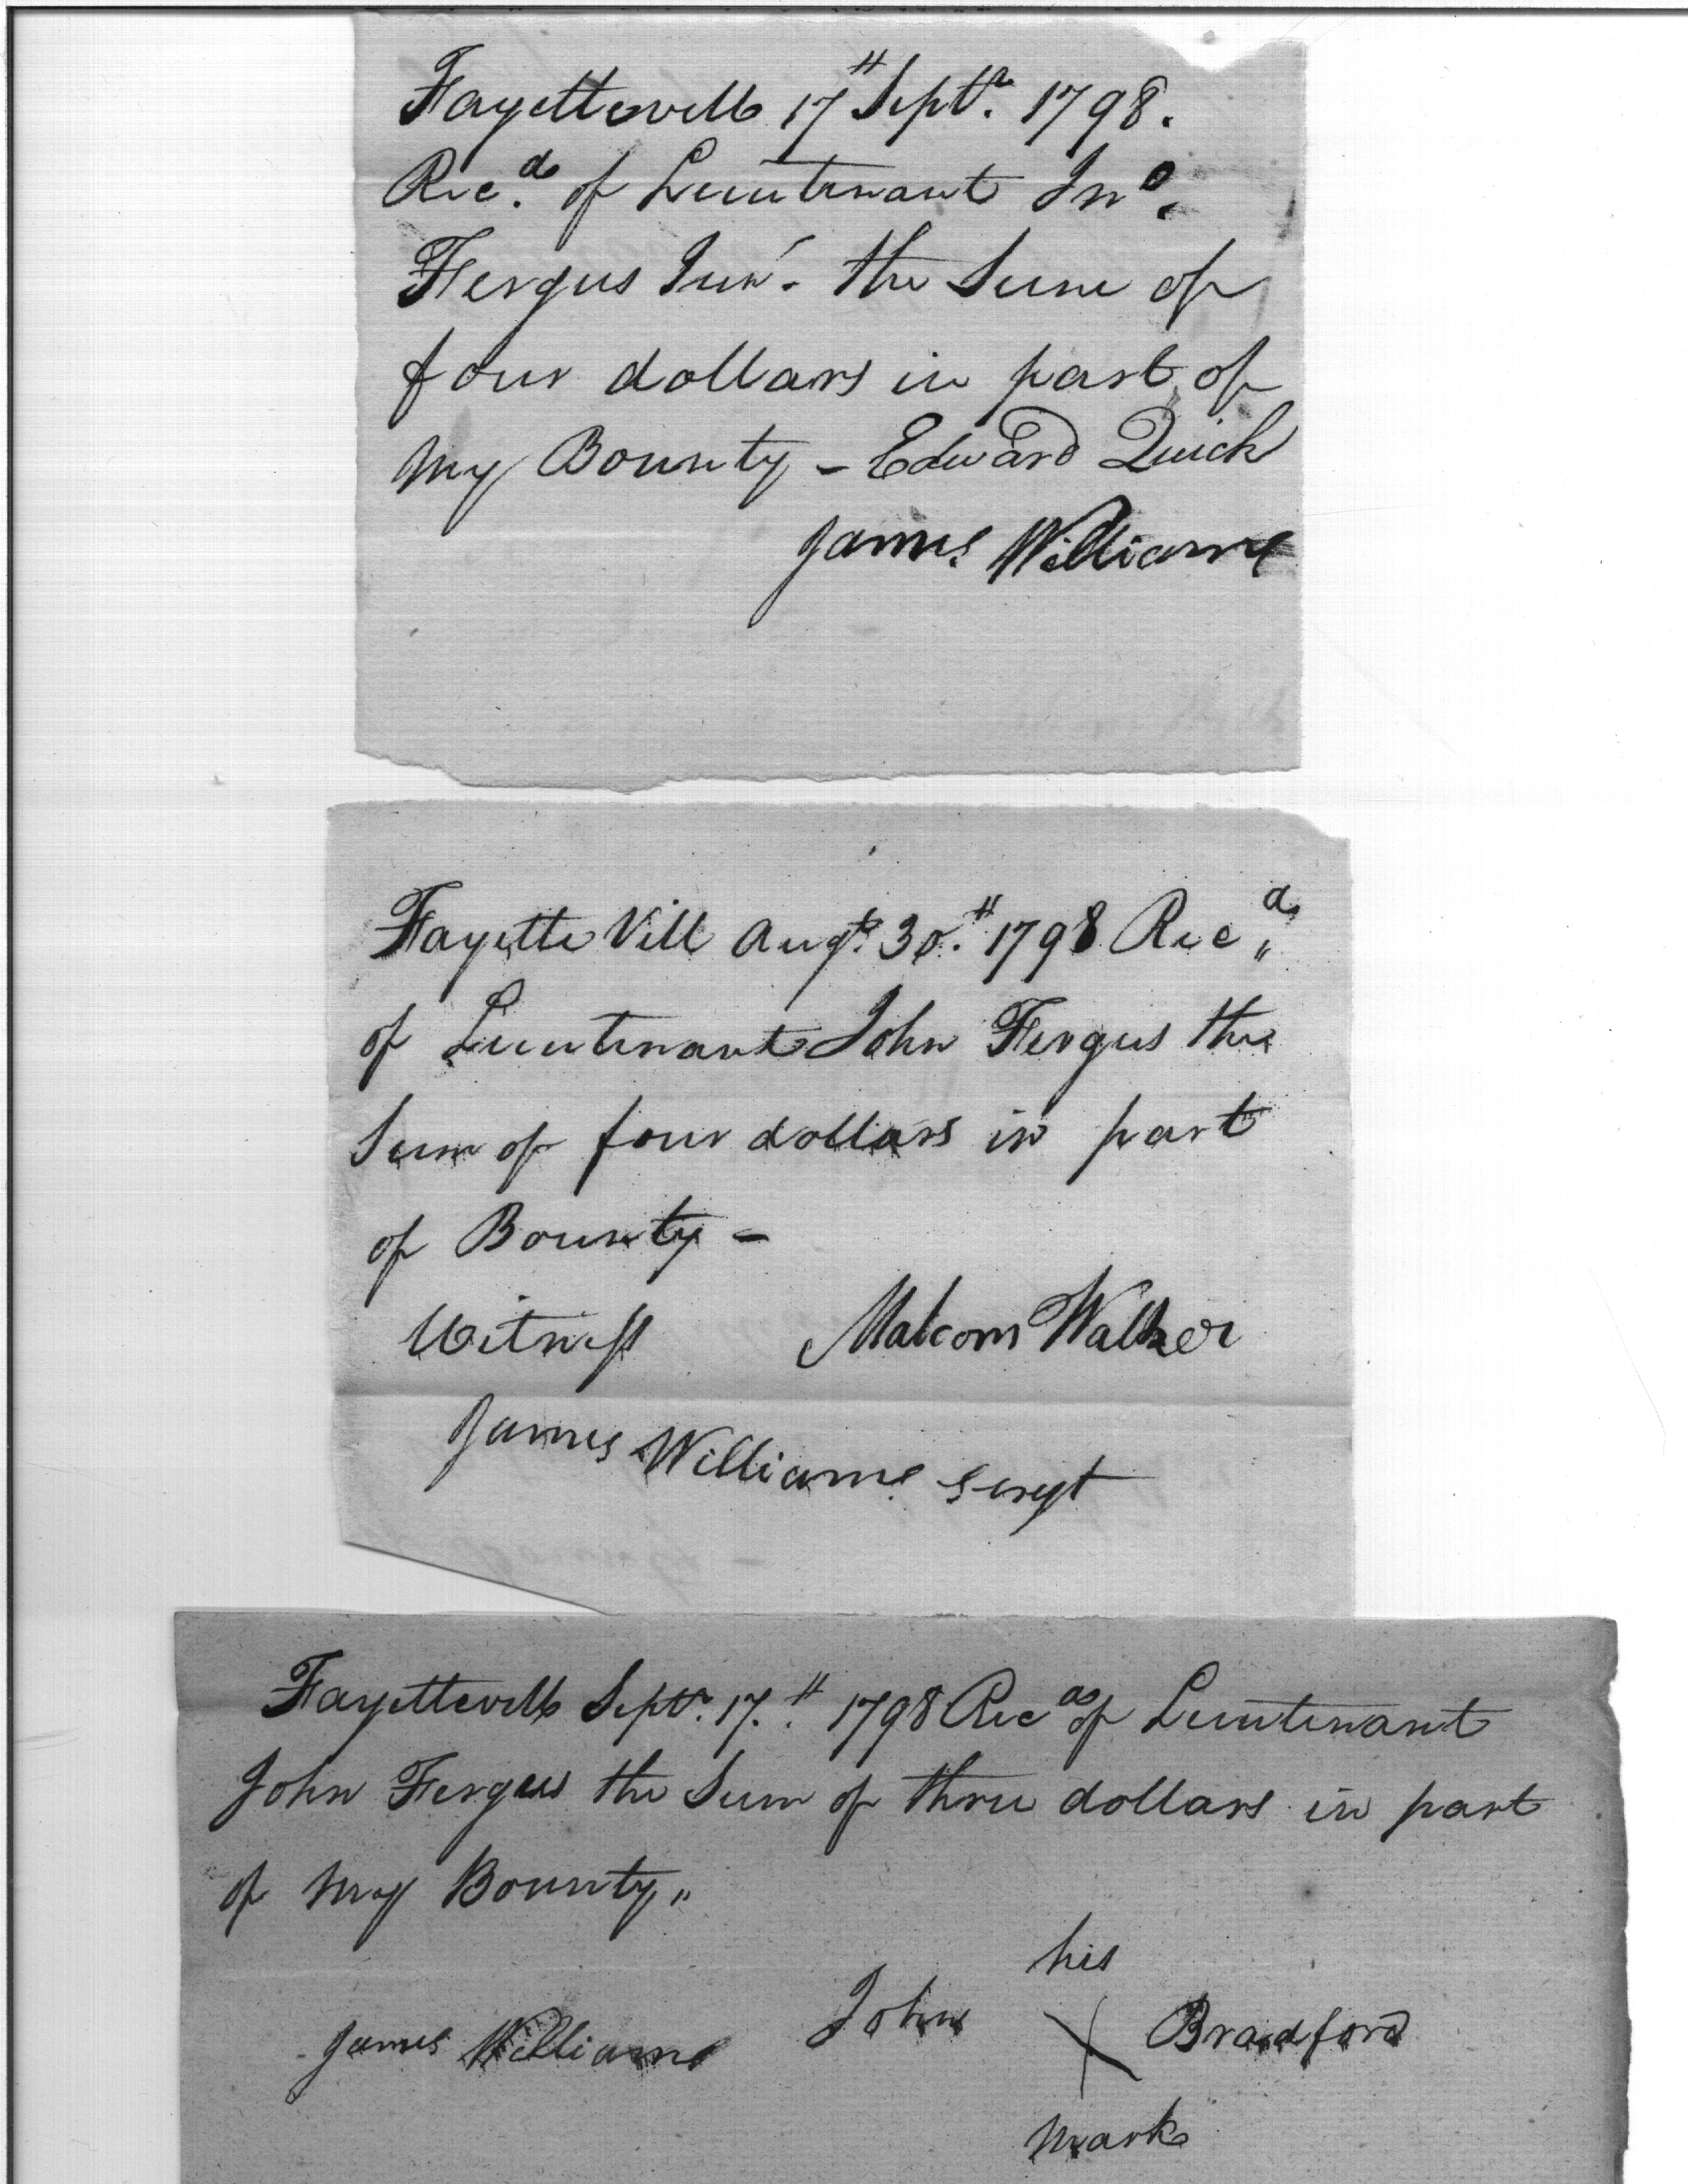 Fayettevill 17th Septr. 1798.
Recd. of Lieutenant Jno.
Fergus Junr. the Sum of
four dollars in part of
my Bounty - Edward Quick
James Williams
Fayette Vill Augt. 30.th 1798 Recd
of Lieutenant John Fergus the
Sum of four dollars in part
of Bounty -
Witness Malcom Walker
James Williams sergt
Fayettevill Septr. 17.th 1798 Recd of Lieutenant
John Fergus the Sum of three dollars in part
of my Bounty"
his
James Williams John X Bradford
mark